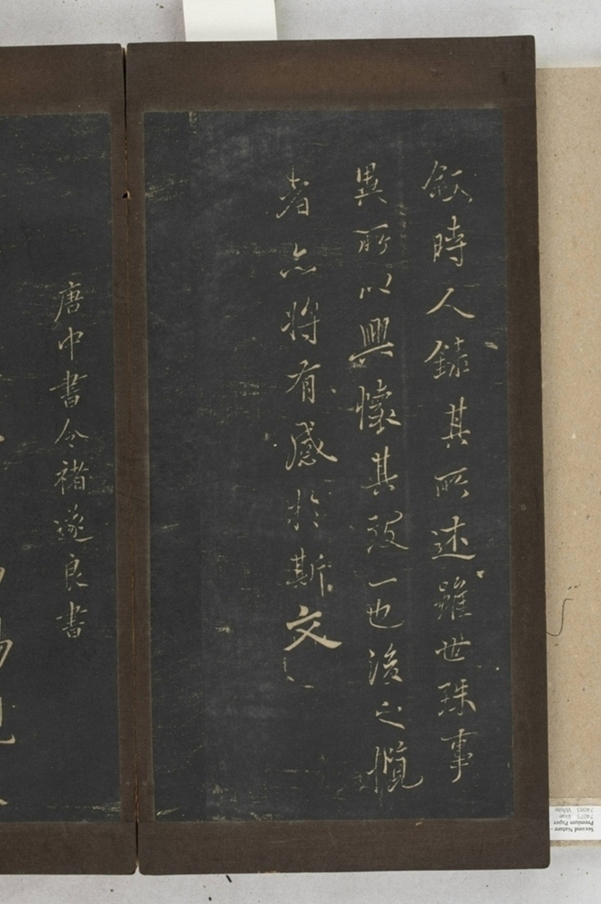 敘時人錄其所述雖世殊事
異所以興懷其致一也後之攬
者亦將有感於斯文
唐中書令褚遂良書
Second Nature -
Premium Paper